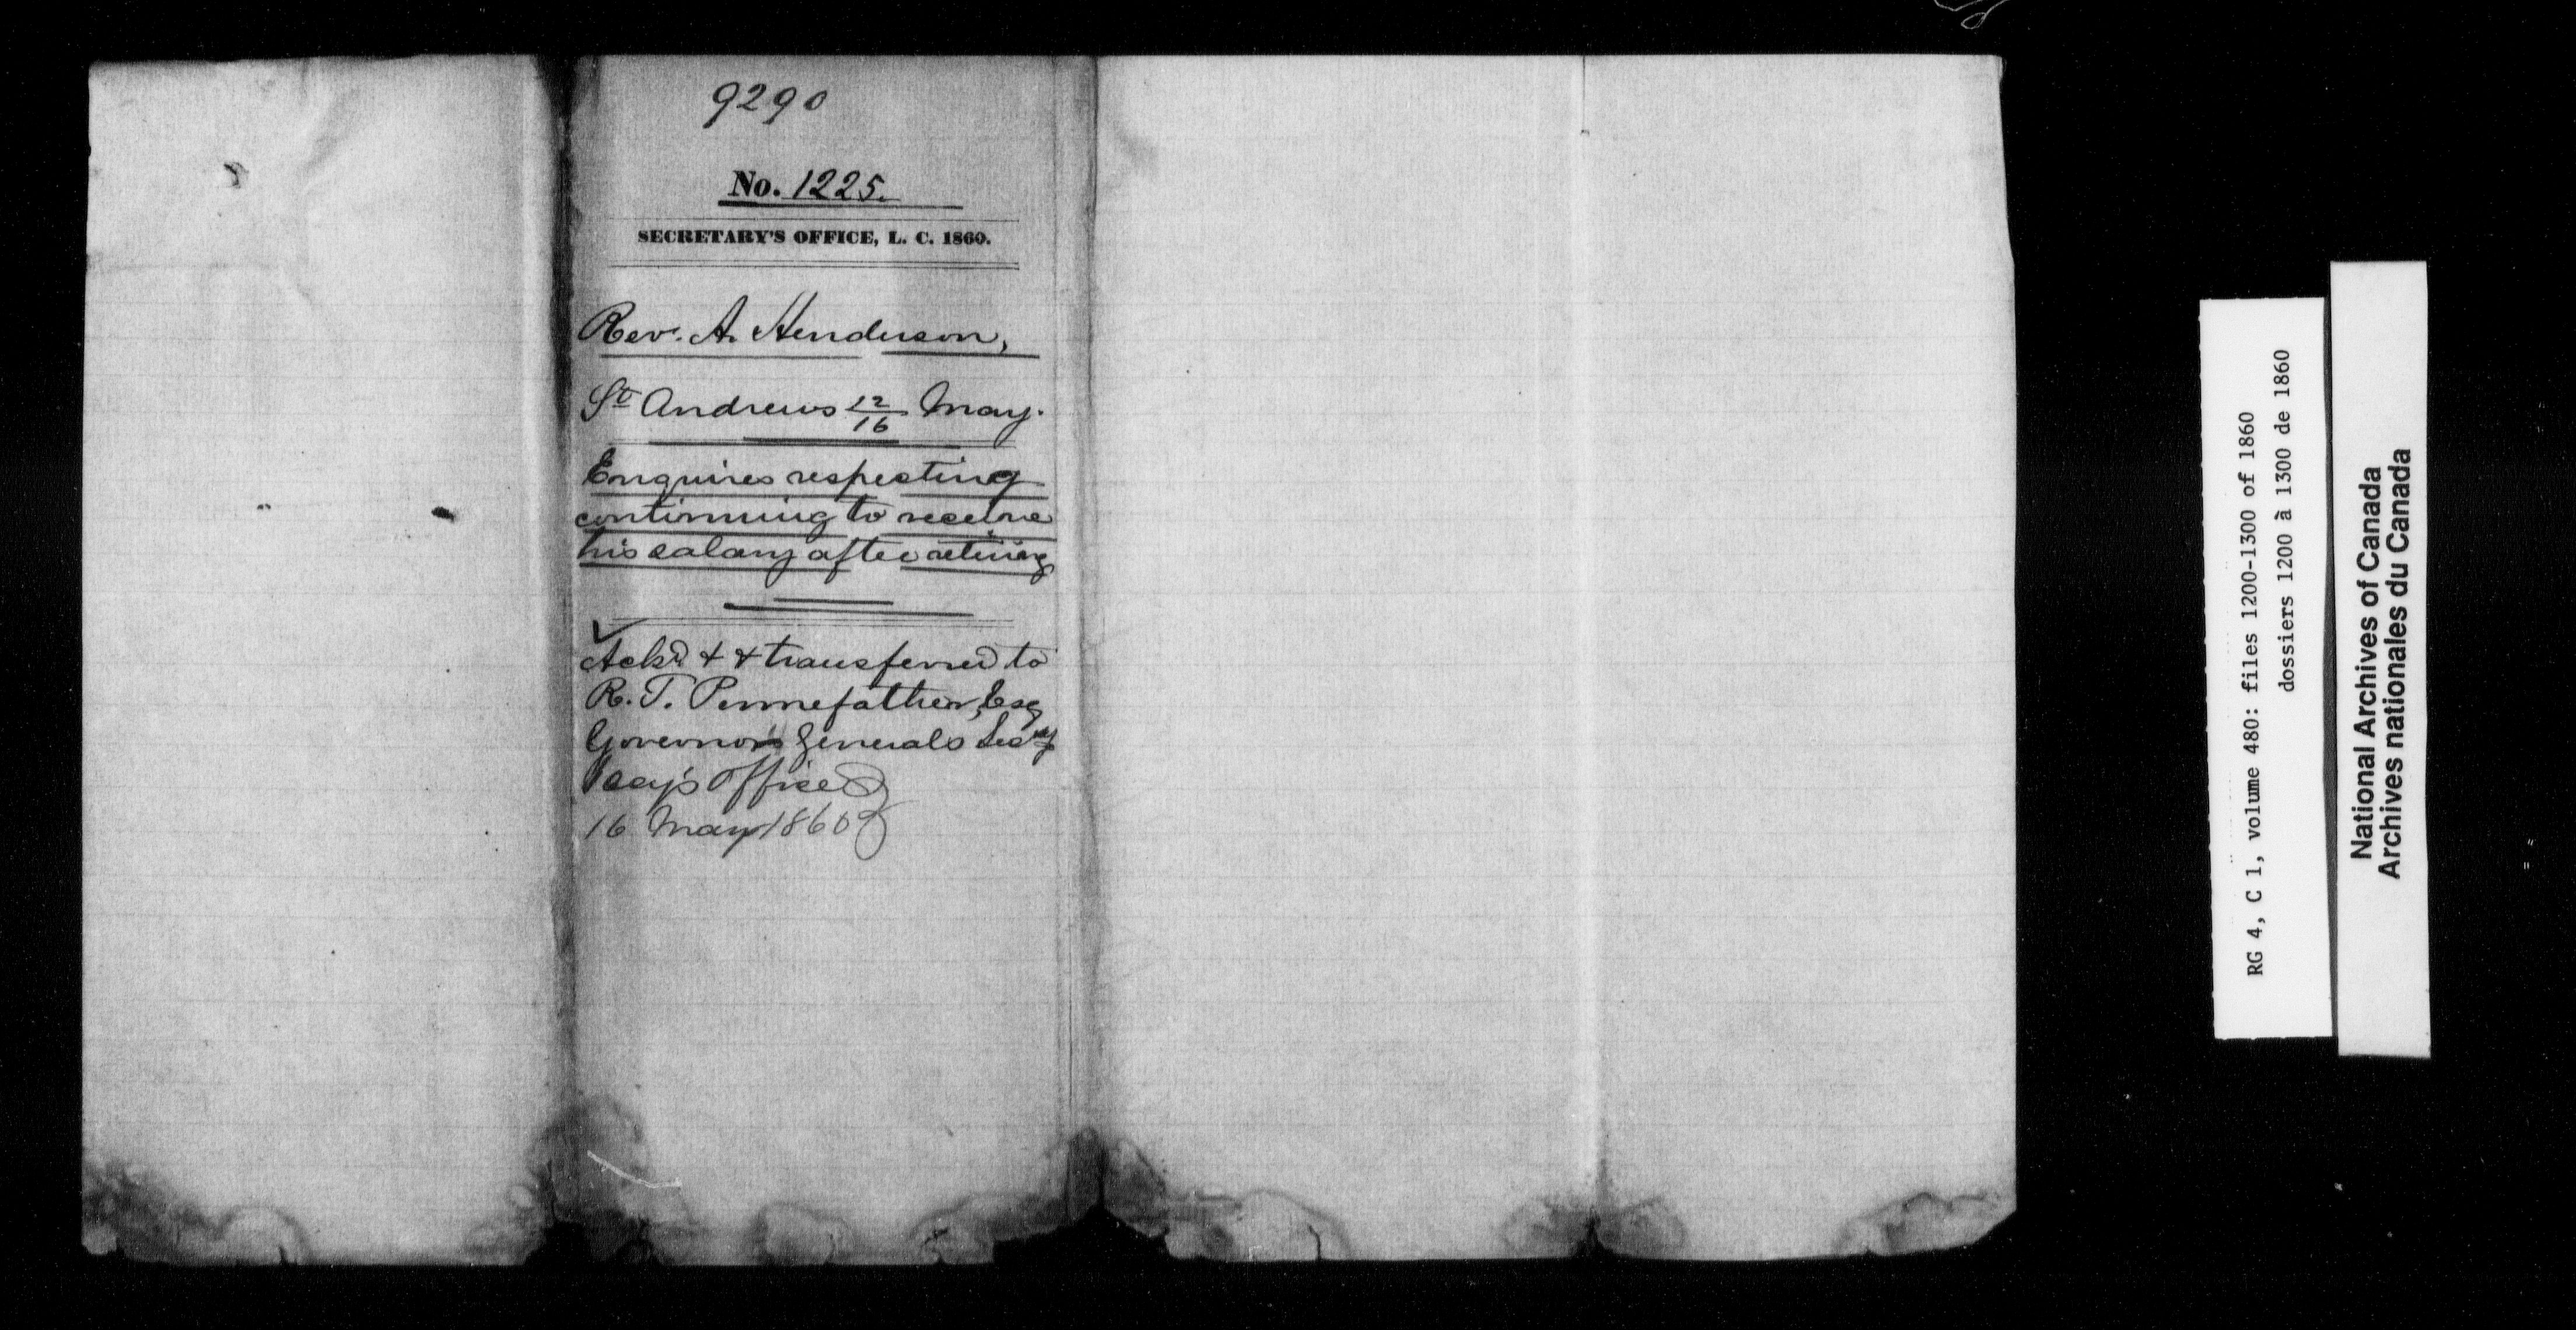 9290
No. 1225.
SECRETARY'S OFFICE, L. C. 1860.
Rev. A. Henderson,
St Andrews 12/16 May.
Enquires respecting
continuing to receive
his salary after retiring
Ackd & & transferred to
R. T. Pennefather, Esq
Governor Generals Secy
Secy's Office
16 May 1860
RG 4, C 1, volume 480: files 1200-1300 of 1860
dossiers 1200 à 1300 de 1860
National Archives of Canada
Archives nationales du Canada